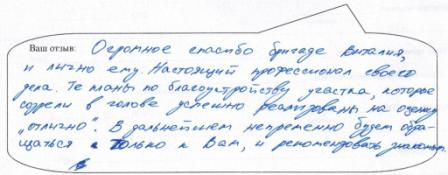 Ваш отзыв: Огромное спасибо бригаде Виталия,
и лично ему. Настоящий профессионал своего
дела. Те планы по благоустройству участка, которые
созрели в голове успешно реализованы на оценку
„отлично". В дальнейшем непременно будем обра-
щаться только к Вам, и рекомендовать знакомым.